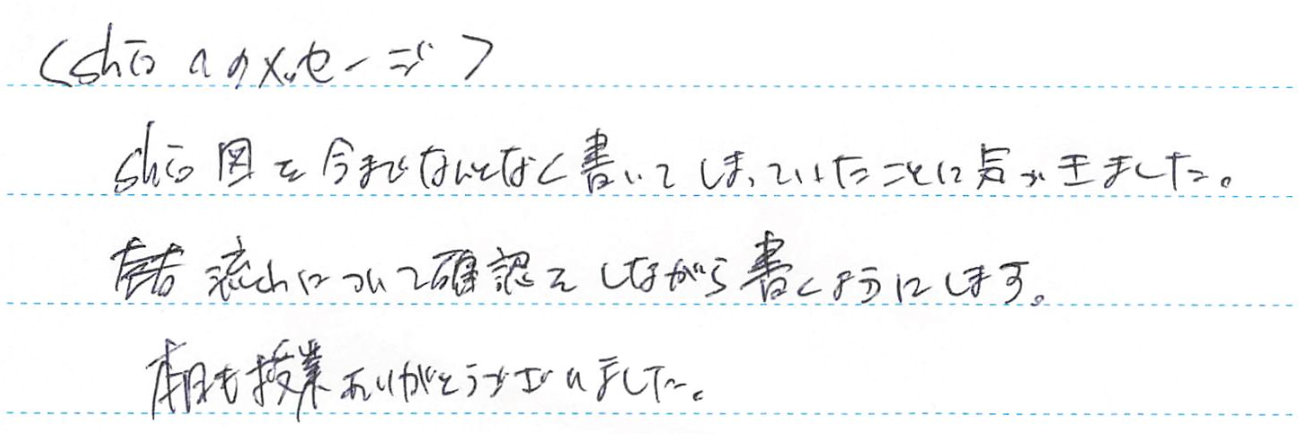 のメッセージ〉
図を今までなんとなく書いてしまっていたことに気づきました。
流れについて確認をしながら書くようにします。
本日も授業ありがとうございました。